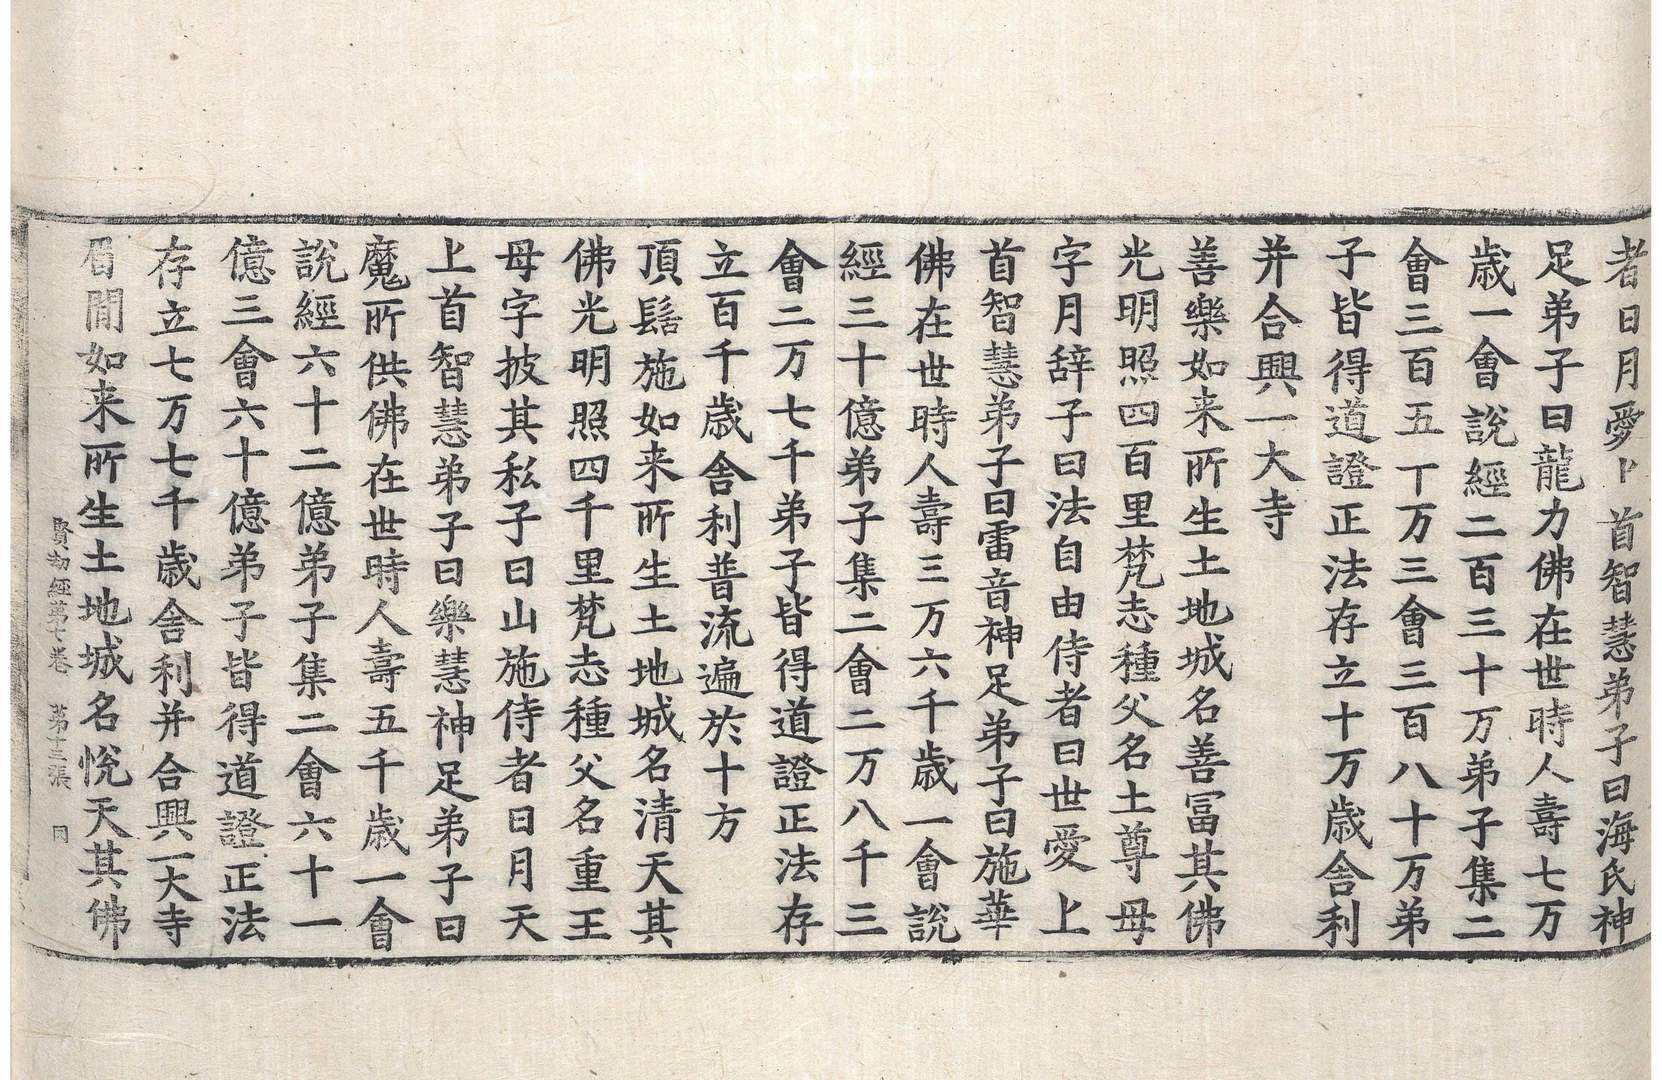 者曰月愛上首智慧弟子曰海氏神
足弟子曰龍力佛在世時人壽七万
歲一會說經二百三十万弟子集二
會三百五十万三會三百八十万弟
子皆得道證正法存立十万歲舍利
并合興一大寺
善樂如来所生土地城名善冨其佛
光明照四百里梵志種父名土尊母
字月辞子曰法自由侍者曰世愛上
首智慧弟子曰雷音神足弟子曰施華
佛在世時人壽三万六千歲一會說
經三十億弟子集二會二万八千三
會二万七千弟子皆得道證正法存
立百千歲舍利普流遍於十方
頂髻施如来所生土地城名清天其
佛光明照四千里梵志種父名重王
母字披其私子曰山施侍者曰月天
上首智慧弟子曰樂慧神足弟子曰
魔所供佛在世時人壽五千歲一會
說經六十二億弟子集二會六十一
億三會六十億弟子皆得道證正法
存立七万七千歲舍利并合興一大寺
眉間如来所生土地城名悅天其佛
賢劫經第七卷 第十三張